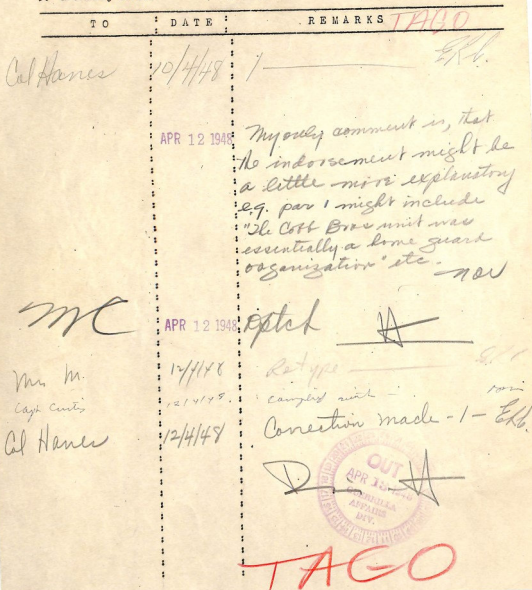 TO DATE REMARKS TAGO
Col Hanes 10/4/48 1 — EKb.
APR 12 1948 My only comment is, that
the indorsement might be
a little more explanatory
e.g. par 1 might include
"The Cobb Bros unit was
essentially a home guard
organization" etc.
APR 12 1948 Dptch H
Mrs M. 12/4/48 Retype —
Capt Curtis 12/4/48. complied with —
Col Hanes 12/4/48 Correction made - 1 - EKb.
OUT
APR 13 1948
GUERRILLA
AFFAIRS
DIV.
TAGO